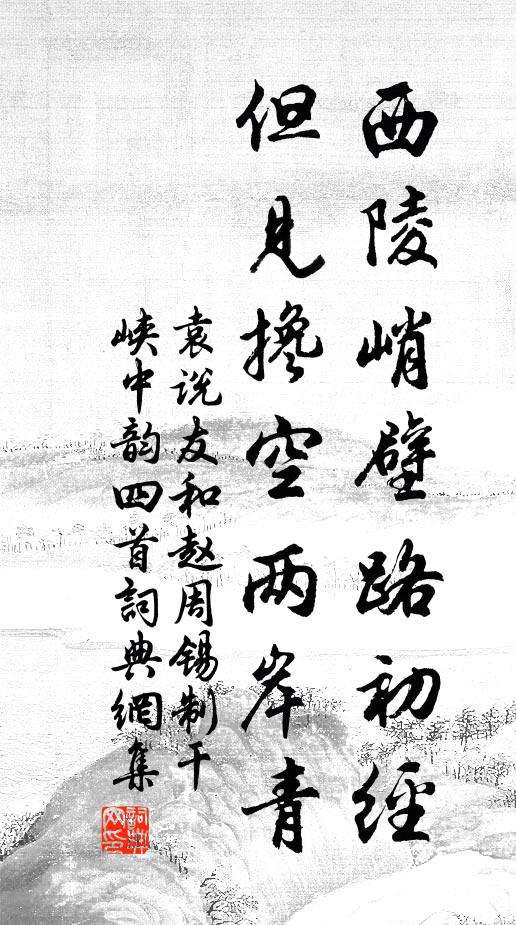 西陵峭壁路初经
但见搀空两岸青
袁说友和赵周锡制干
峡中韵四首词典網集